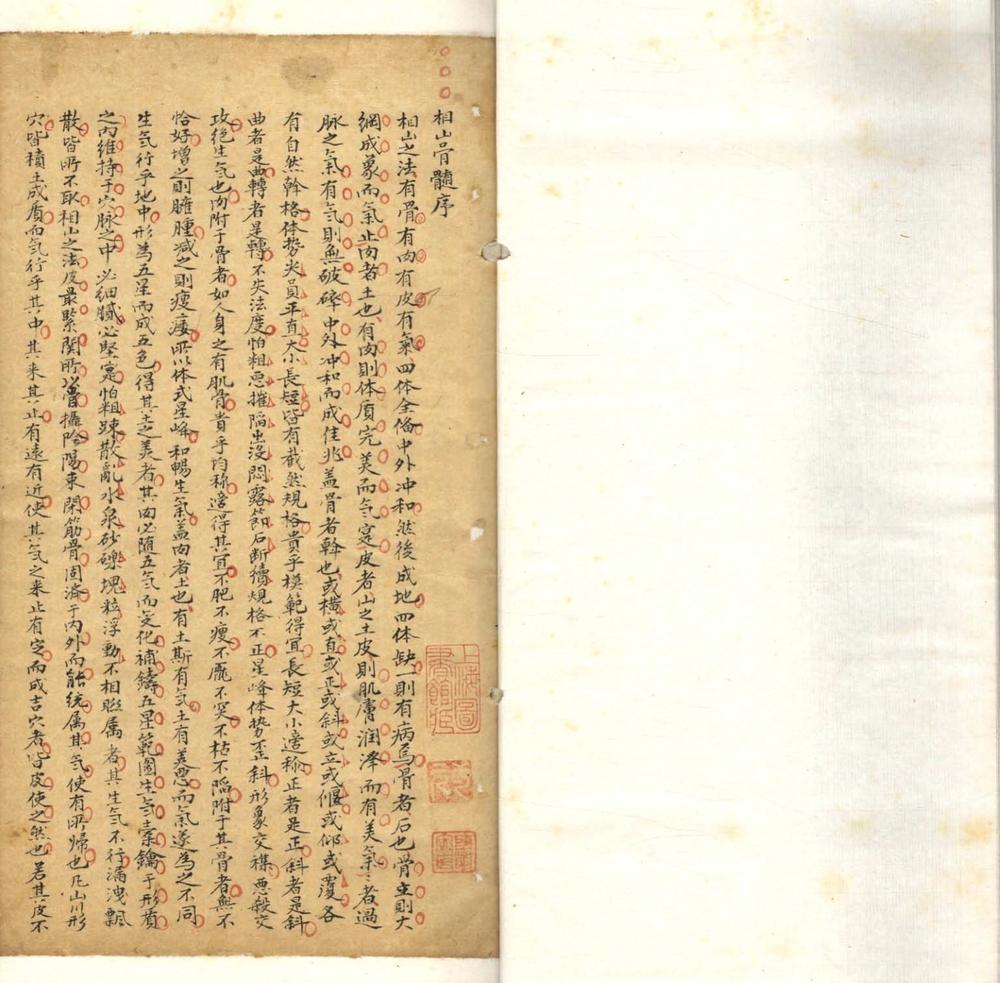 相山骨髓序
相山之法有骨有肉有皮有氣四体全俻中外冲和然後成地四体缺一則有病焉骨者石也骨立則大
綱成象而氣止肉者土也有肉則体质完美而气寔皮者山之土皮則肌膚润泽而有美氣〻者過
脉之氣有气則無破碎中外冲和而成佳兆盖骨者幹也或横或直或正或斜或立或偃或仰或覆各
有自然幹格体势尖員平直大小長短皆有截然規格貴乎模範得宜長短大小適称正者是正斜者是斜
曲者是曲轉者是轉不失法度怕粗悪摧陷出没悶露節石断續規格不正星峰体势歪斜形象交襍悪殺交
攻绝生气也肉附于骨者如人身之有肌骨貴乎均称適得其宜不肥不瘦不麁不突不枯不陷附于其骨者無不
恰好增之則臃腫减之則瘦瘻所以体式星峰和暢生氣盖肉者土也有土斯有气土有美悪而氣遂為之不同
生气行乎地中形為五星而成五色得其土之美者其肉必随五气而变化補鑄五星範圍生气橐鑰于形質
之内維持于穴脉之中必细膩必堅寔怕粗踈散亂水泉砂礫塊粒浮動不相聫属者其生气不行漏洩飄
散皆所不取相山之法皮最緊関所以管攝阴陽束閑筋骨固济于内外而能统属其气使有所歸也凡山川形
穴皆積土成质而气行乎其中其来其止有遠有近使其气之来止有定而成吉穴者皆皮使之然也若其皮不
上海圖書館藏